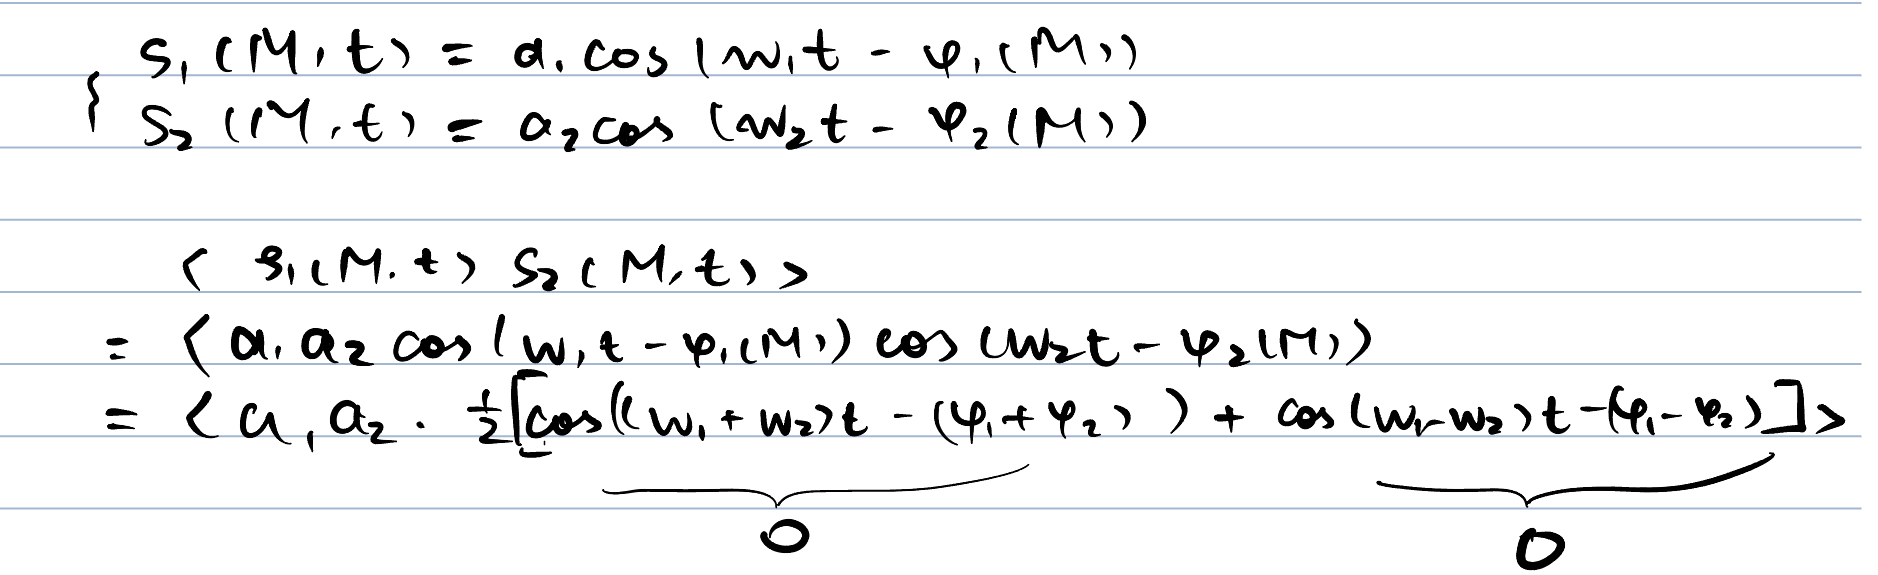 { S₁(M,t) = a₁ cos(w₁t - φ₁(M))
S₂(M,t) = a₂ cos(w₂t - φ₂(M))
< S₁(M,t) S₂(M,t) >
= < a₁ a₂ cos(w₁t - φ₁(M)) cos(w₂t - φ₂(M)) >
= < a₁ a₂ · ½[cos((w₁ + w₂)t - (φ₁ + φ₂)) + cos(w₁-w₂)t -(φ₁ - φ₂)] >
0 0